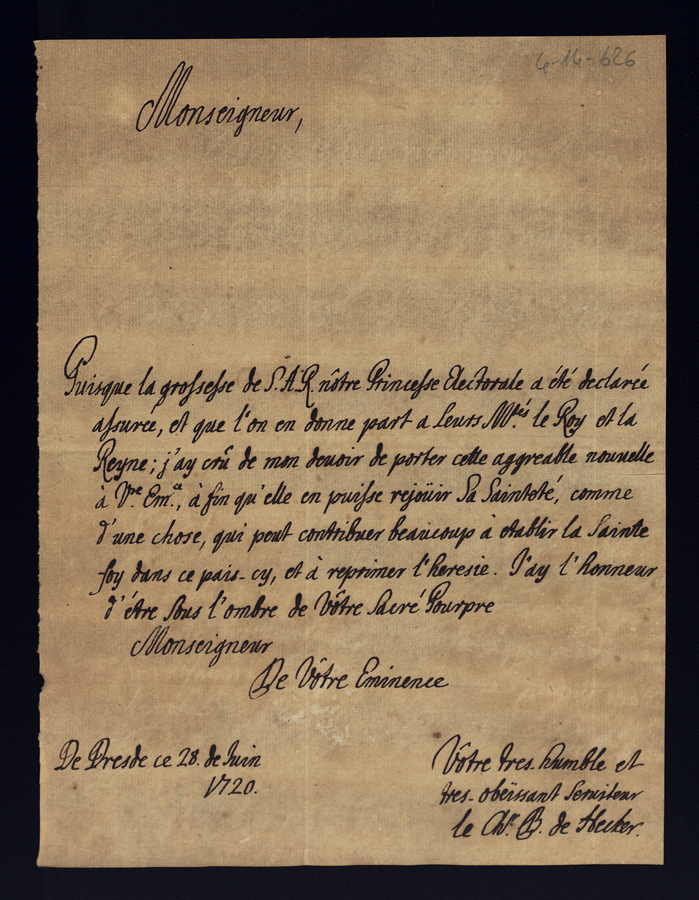 4-14-626
Monseigneur,
Puisque la grossesse de S. A. R. nôtre Princesse Electorale a été declarée
assurée, et que l'on en donne part a Leurs M.tés le Roy et la
Reyne; j'ay crû de mon devoir de porter cette aggreable nouvelle
à V.re Em.ce, à fin qu'elle en puisse rejoüir Sa Sainteté, comme
d'une chose, qui peut contribuer beaucoup à etablir la Sainte
foy dans ce pais-cy, et à reprimer l'heresie. J'ay l'honneur
d'étre sous l'ombre de Vôtre Sacré Pourpre
Monseigneur
De Vôtre Eminence
De Dresde ce 28. de Juin
1720.
Vôtre tres-humble et
tres-obëissant Serviteur
le Ch.r B. de Hecker.